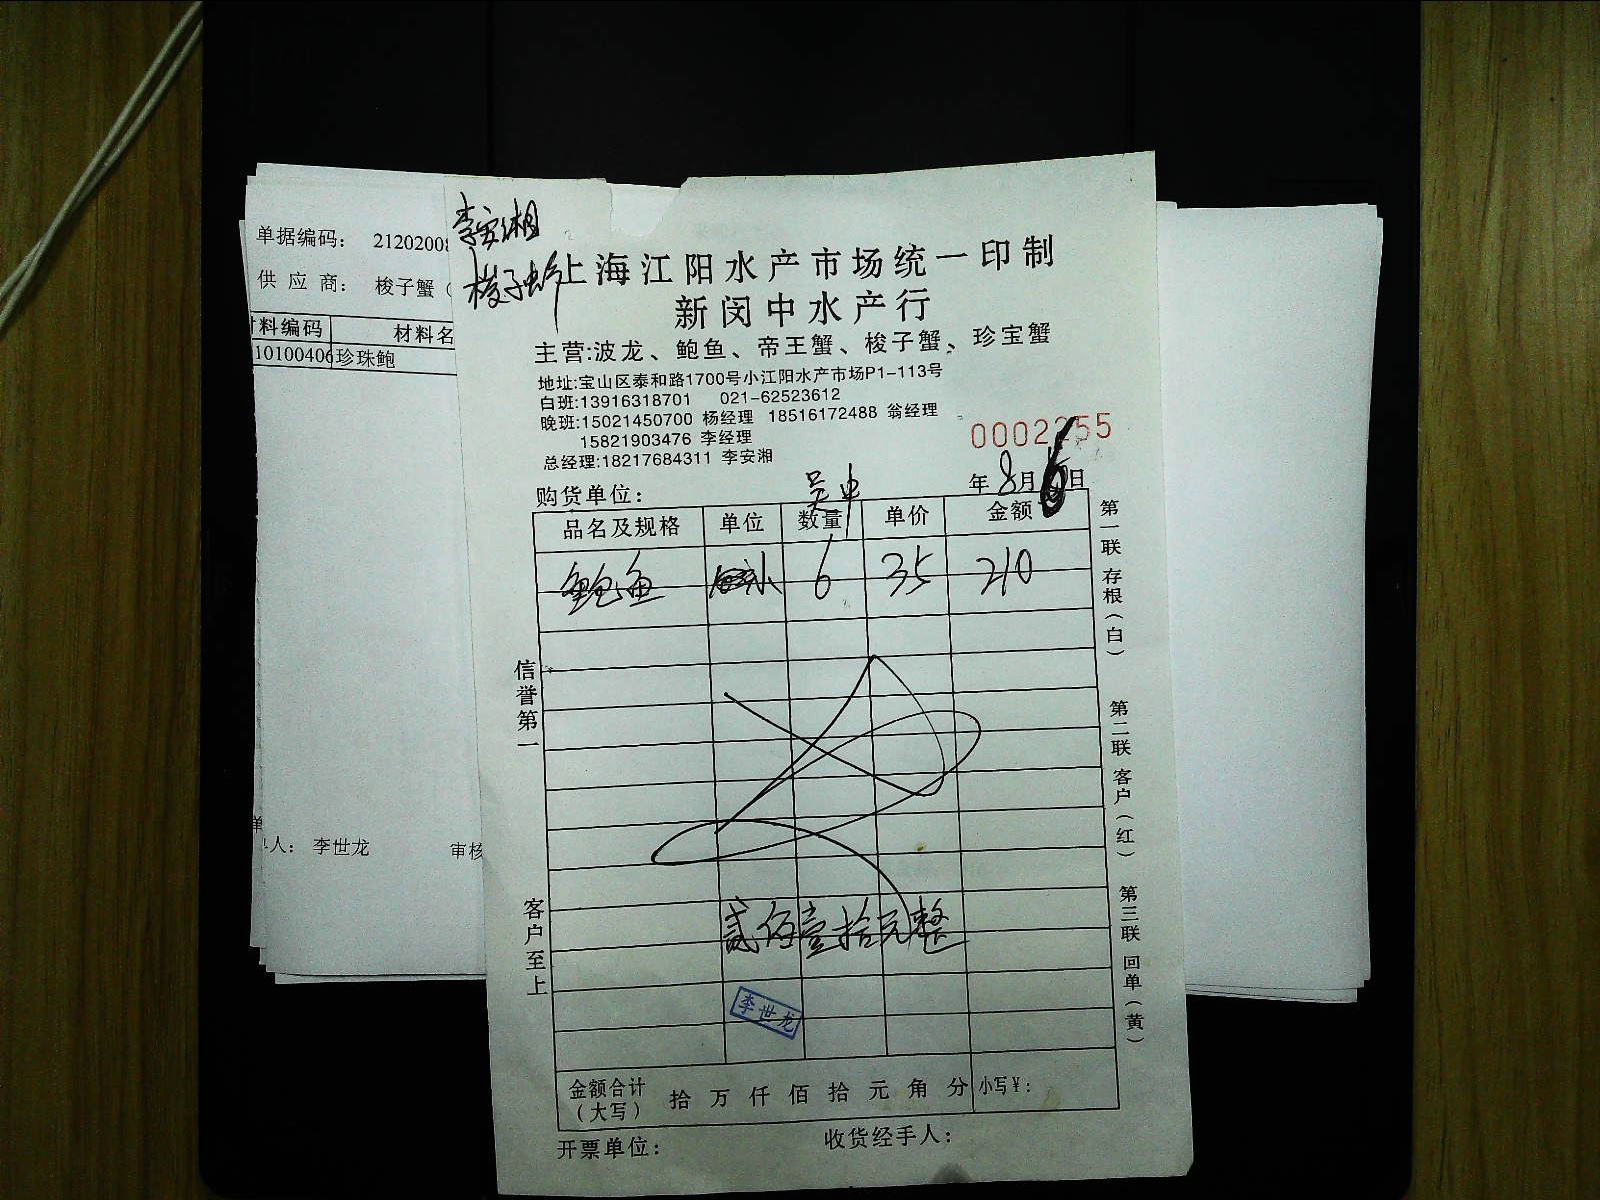 李安湘
梭子蟹
上海江阳水产市场统一印制
新闵中水产行
主营:波龙、鲍鱼、帝王蟹、梭子蟹、珍宝蟹
地址:宝山区泰和路1700号小江阳水产市场P1-113号
白班:13916318701 021-62523612
晚班:15021450700 杨经理 18516172488 翁经理
15821903476 李经理
总经理:18217684311 李安湘
0002255
购货单位: 吴中
年8月6日
品名及规格 单位 数量 单价 金额
鲍鱼 6 35 210
贰佰壹拾元整
李世龙
金额合计(大写) 拾 万 仟 佰 拾 元 角 分 小写¥:
开票单位: 收货经手人:
信誉第一
客户至上
第一联 存根(白)
第二联 客户(红)
第三联 回单(黄)
单据编码: 21202008
供应商: 梭子蟹(
材料编码 材料名
10100406 珍珠鲍
人: 李世龙 审核